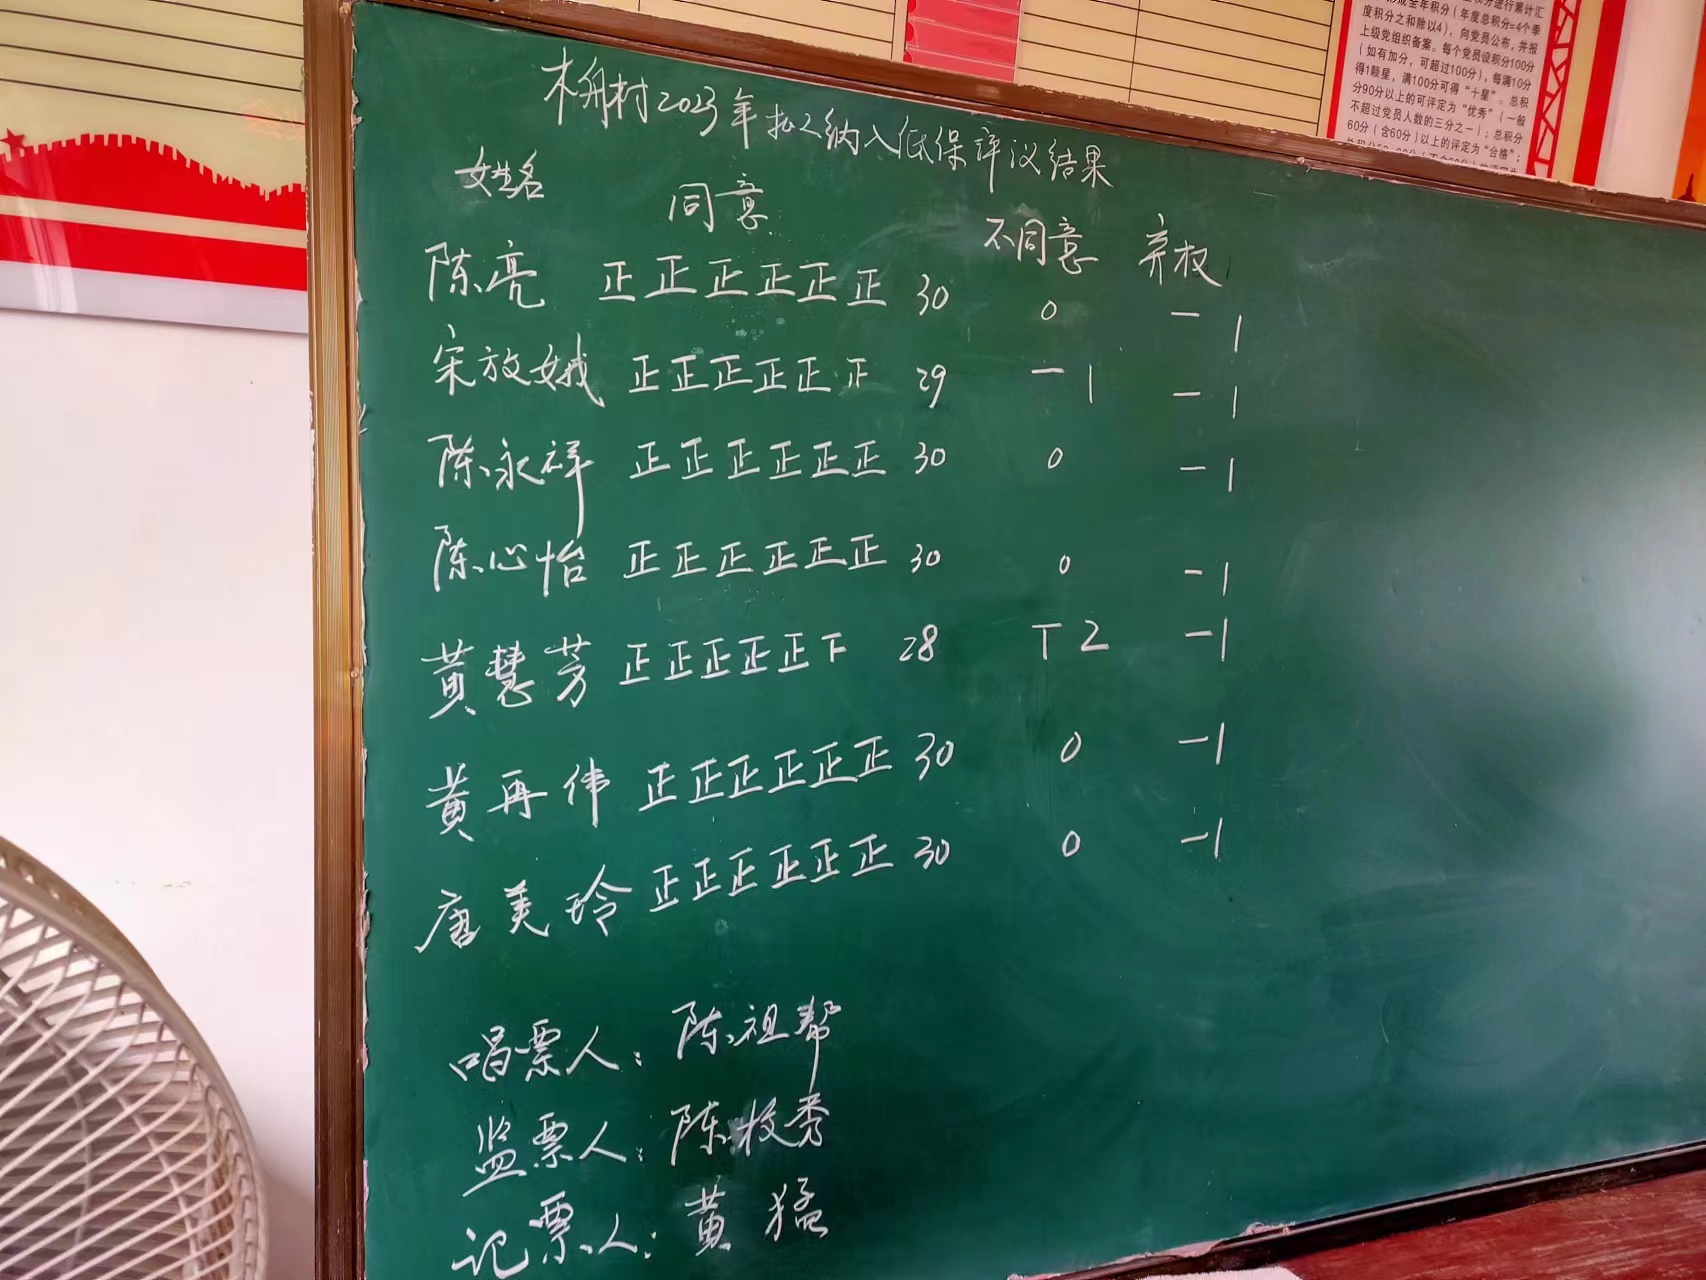 木舟村2023年拟纳入低保评议结果
姓名 同意 不同意 弃权
陈亮 正正正正正正 30 0 一 1
宋放娥 正正正正正正 29 一 1 一 1
陈永祥 正正正正正正 30 0 一 1
陈心怡 正正正正正正 30 0 一 1
黄慧芳 正正正正正下 28 T 2 一 1
黄再伟 正正正正正正 30 0 一 1
唐美玲 正正正正正正 30 0 一 1
唱票人：陈祖帮
监票人：陈枚秀
记票人：黄猛
分进行累计汇
成全年积分（年度总积分=4个季
度积分之和除以4），向党员公布，并报
上级党组织备案。每个党员设积分100分
（如有加分，可超过100分），每满10分
得1颗星，满100分可得“十星”。总积
分90分以上的可评定为“优秀”（一般
不超过党员人数的三分之一）；总积分
60分（含60分）以上的评定为“合格”；